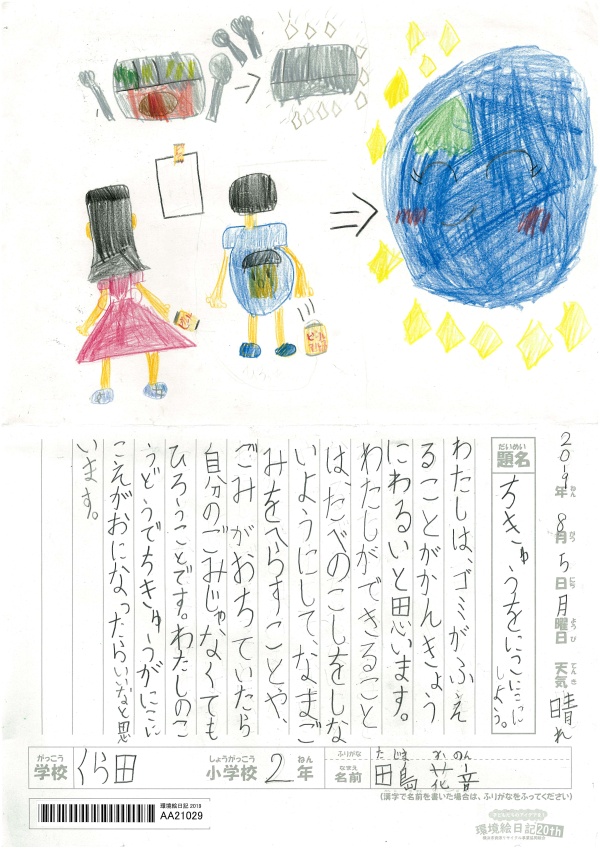 2019年 8月 5日 月曜日 天気 晴れ
ねん がつ にち ようび てんき
だいめい
題名
ちきゅうをにこにこにしよう。
わたしは、ゴミがふえ
ることがかんきょう
にわるいと思います。
わたしができること
は、たべのこしをしな
いようにして、なまご
みをへらすことや、
ごみがおちていたら
自分のごみじゃなくても
ひろうことです。わたしのこ
うどうでちきゅうがにこに
こえがおになったらいいなと思
います。
がっこう
学校 くら田
しょうがっこう
小学校 2年
ねん
ふりがな たじま かのん
なまえ
名前 田島 花音
(漢字で名前を書いた場合は、ふりがなをふってください)
環境絵日記 2019
AA21029
環境絵日記20th